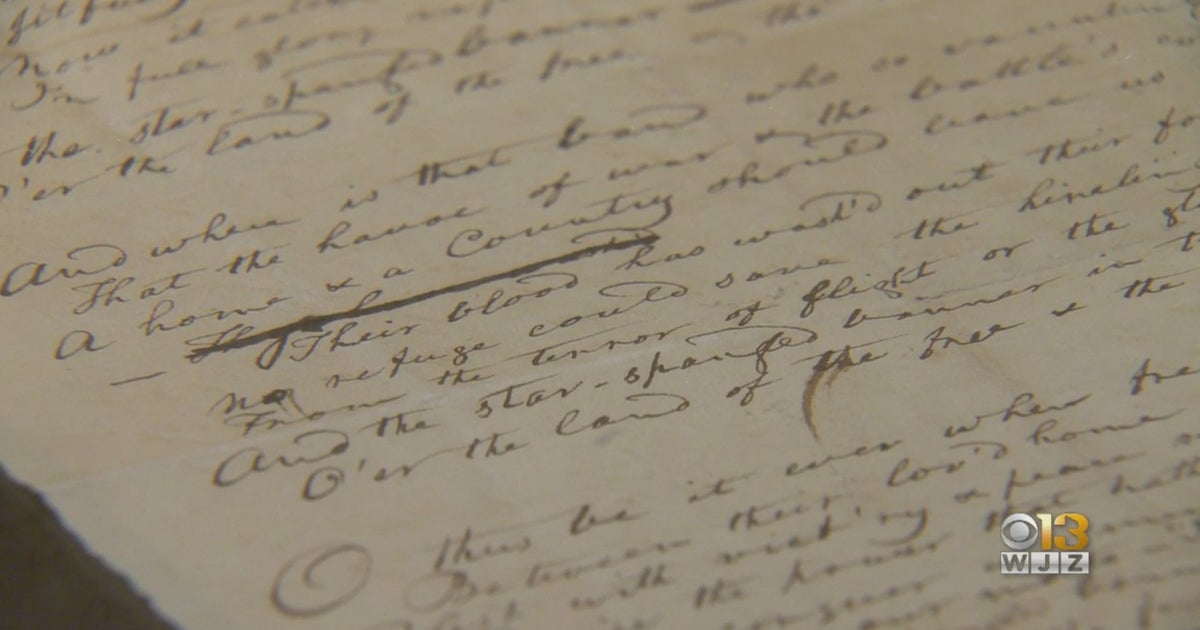 Now it
In full glory
the star-spangled banner the
O'er the land of the free
And where is that band who so
That the havoc of war & the battle's
A home & a Country should leave us
Their blood has wash'd out their
no refuge could save the hireling
From the terror of flight or the
And the star-spangled banner in
O'er the land of the free & the
O thus be it ever when
Between their lov'd home
with vict'ry & peace
the power that hath
13
WJZ